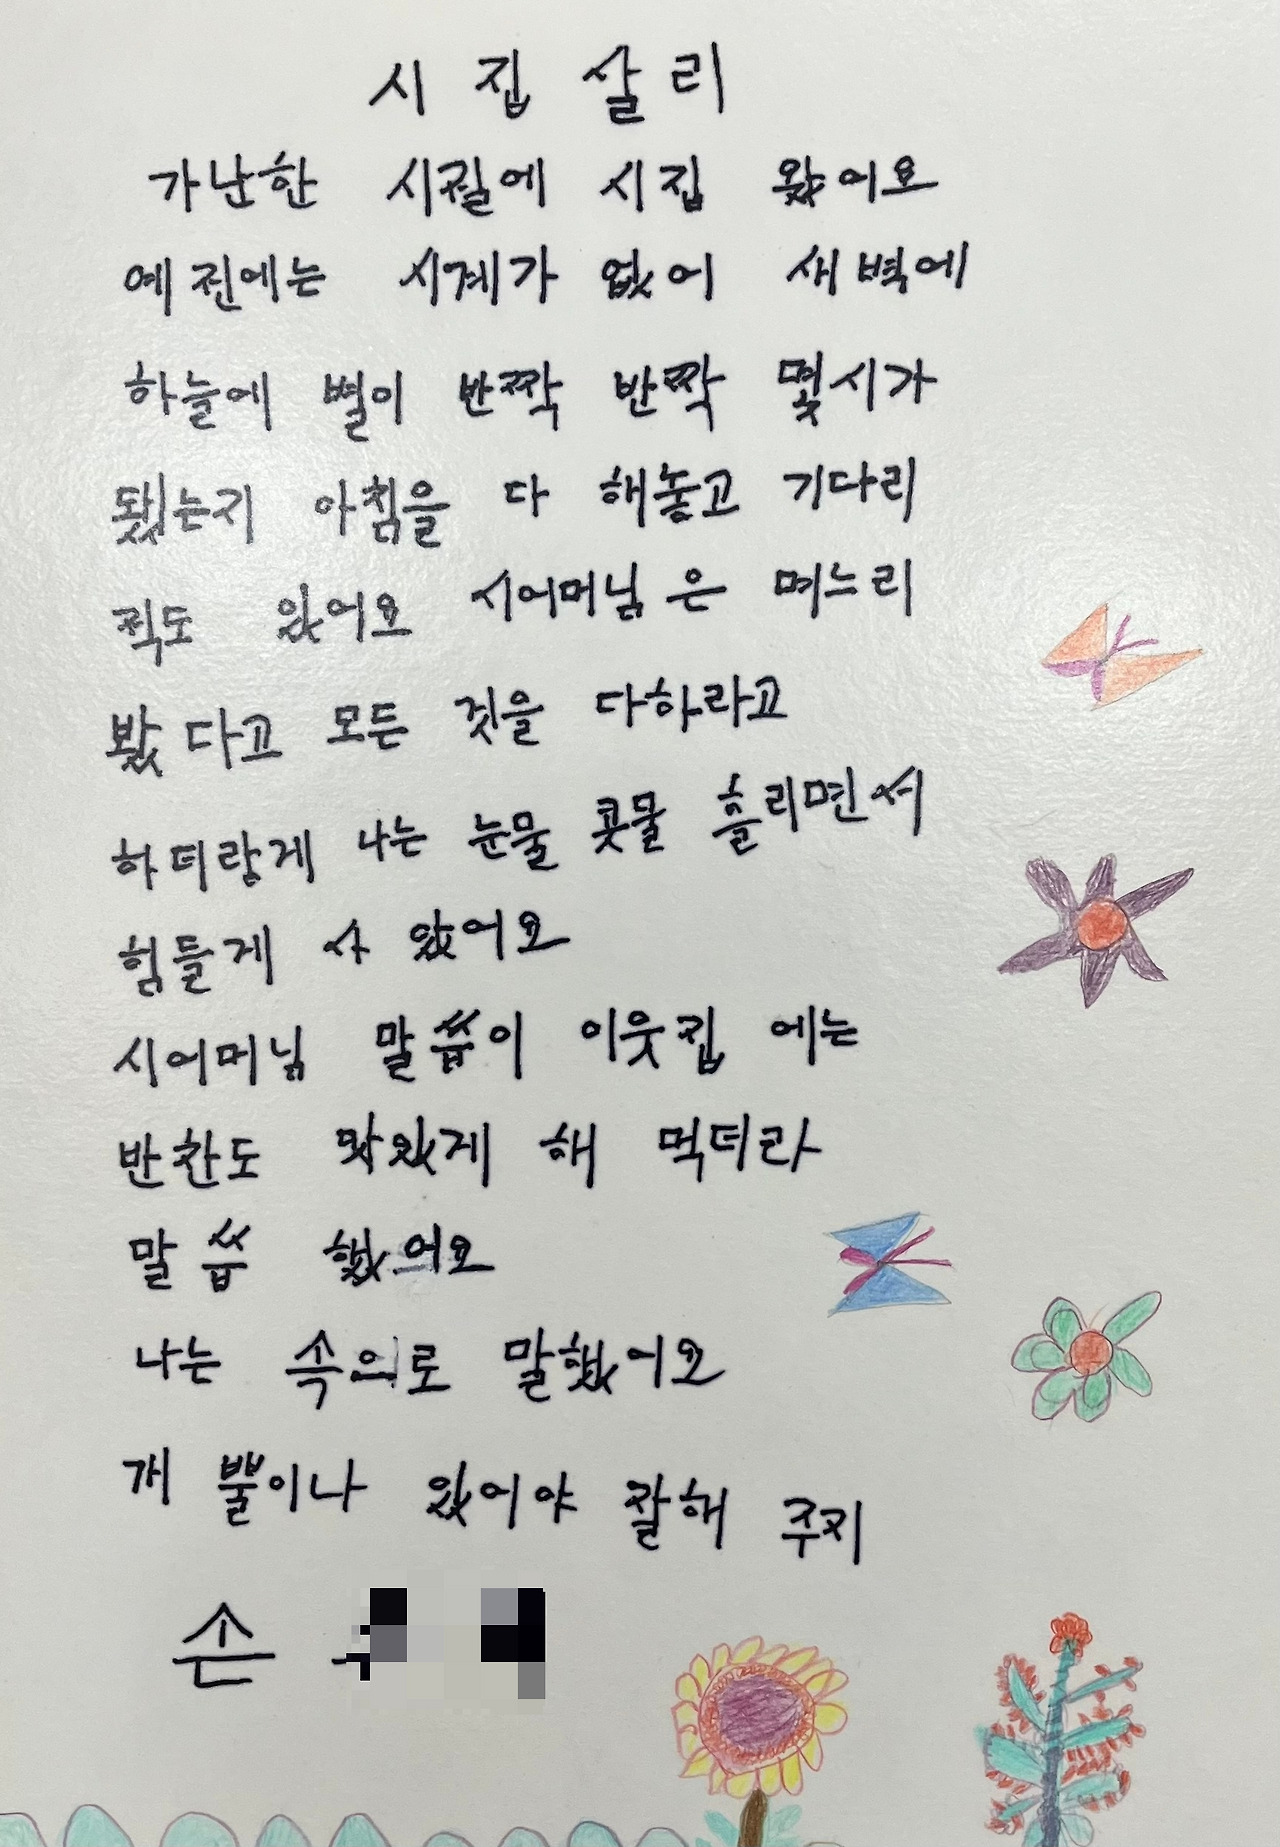 시집살리
가난한 시절에 시집 왔어요
예전에는 시계가 없어 새벽에
하늘에 별이 반짝 반짝 몇시가
됐는지 아침을 다 해놓고 기다리
적도 있어요 시어머님은 며느리
봤다고 모든 것을 다하라고
하더랑게 나는 눈물 콧물 흘리면서
힘들게 사 았어요
시어머님 말씀이 이웃집 에는
반찬도 맛있게 해 먹더라
말씀 했어요
나는 속으로 말했어요
개 뿔이나 있어야 잘해 주지
손